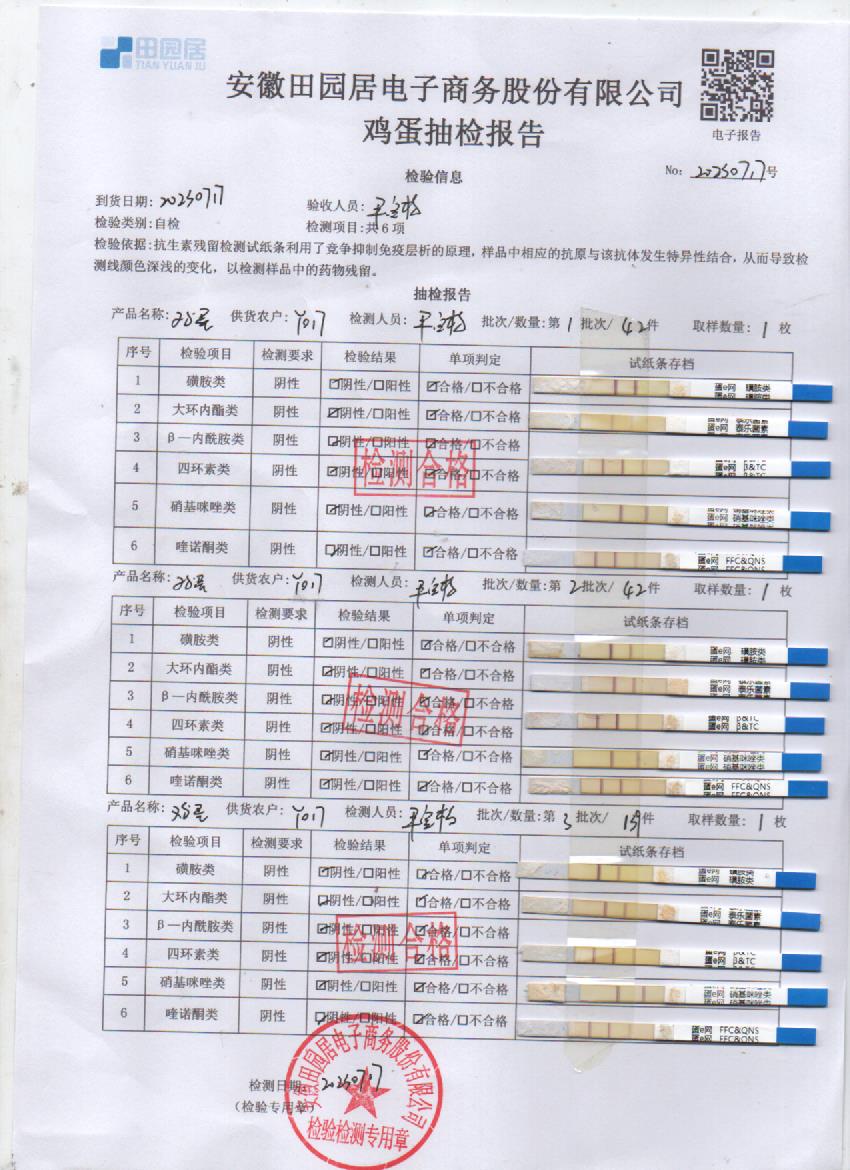 田园居
TIAN YUAN JU
安徽田园居电子商务股份有限公司
鸡蛋抽检报告
电子报告
检验信息
No: 20250717号
到货日期: 20250717 验收人员:
检验类别:自检 检测项目:共6项
检验依据:抗生素残留检测试纸条利用了竞争抑制免疫层析的原理，样品中相应的抗原与该抗体发生特异性结合，从而导致检
测线颜色深浅的变化，以检测样品中的药物残留。
抽检报告
产品名称: 供货农户: Y017 检测人员: 批次/数量:第1批次/42件 取样数量: 1枚
序号 检验项目 检测要求 检验结果 单项判定 试纸条存档
1 磺胺类 阴性 ☑阴性/☐阳性 ☑合格/☐不合格 蛋e网 磺胺类
2 大环内酯类 阴性 ☑阴性/☐阳性 ☑合格/☐不合格 蛋e网 泰乐菌素
3 β—内酰胺类 阴性 ☑阴性/☐阳性 ☑合格/☐不合格
4 四环素类 阴性 ☑阴性/☐阳性 ☑合格/☐不合格 蛋e网 β&TC
检测合格
5 硝基咪唑类 阴性 ☑阴性/☐阳性 ☑合格/☐不合格 蛋e网 硝基咪唑类
6 喹诺酮类 阴性 ☑阴性/☐阳性 ☑合格/☐不合格 蛋e网 FFC&QNS
产品名称: 供货农户: Y017 检测人员: 批次/数量:第2批次/42件 取样数量: 1枚
序号 检验项目 检测要求 检验结果 单项判定 试纸条存档
1 磺胺类 阴性 ☑阴性/☐阳性 ☑合格/☐不合格 蛋e网 磺胺类
2 大环内酯类 阴性 ☑阴性/☐阳性 ☑合格/☐不合格 蛋e网 泰乐菌素
3 β—内酰胺类 阴性 ☑阴性/☐阳性 ☑合格/☐不合格
检测合格
4 四环素类 阴性 ☑阴性/☐阳性 ☑合格/☐不合格 蛋e网 β&TC
5 硝基咪唑类 阴性 ☑阴性/☐阳性 ☑合格/☐不合格 蛋e网 硝基咪唑类
6 喹诺酮类 阴性 ☑阴性/☐阳性 ☑合格/☐不合格 蛋e网 FFC&QNS
产品名称: 供货农户: Y017 检测人员: 批次/数量:第3批次/19件 取样数量: 1枚
序号 检验项目 检测要求 检验结果 单项判定 试纸条存档
1 磺胺类 阴性 ☑阴性/☐阳性 ☑合格/☐不合格 蛋e网 磺胺类
2 大环内酯类 阴性 ☑阴性/☐阳性 ☑合格/☐不合格 蛋e网 泰乐菌素
3 β—内酰胺类 阴性 ☑阴性/☐阳性 ☑合格/☐不合格
检测合格
4 四环素类 阴性 ☑阴性/☐阳性 ☑合格/☐不合格 蛋e网 β&TC
5 硝基咪唑类 阴性 ☑阴性/☐阳性 ☑合格/☐不合格 蛋e网 硝基咪唑类
6 喹诺酮类 阴性 ☑阴性/☐阳性 ☑合格/☐不合格 蛋e网 FFC&QNS
检测日期: 20250717
(检验专用章)
安徽田园居电子商务股份有限公司
检验检测专用章